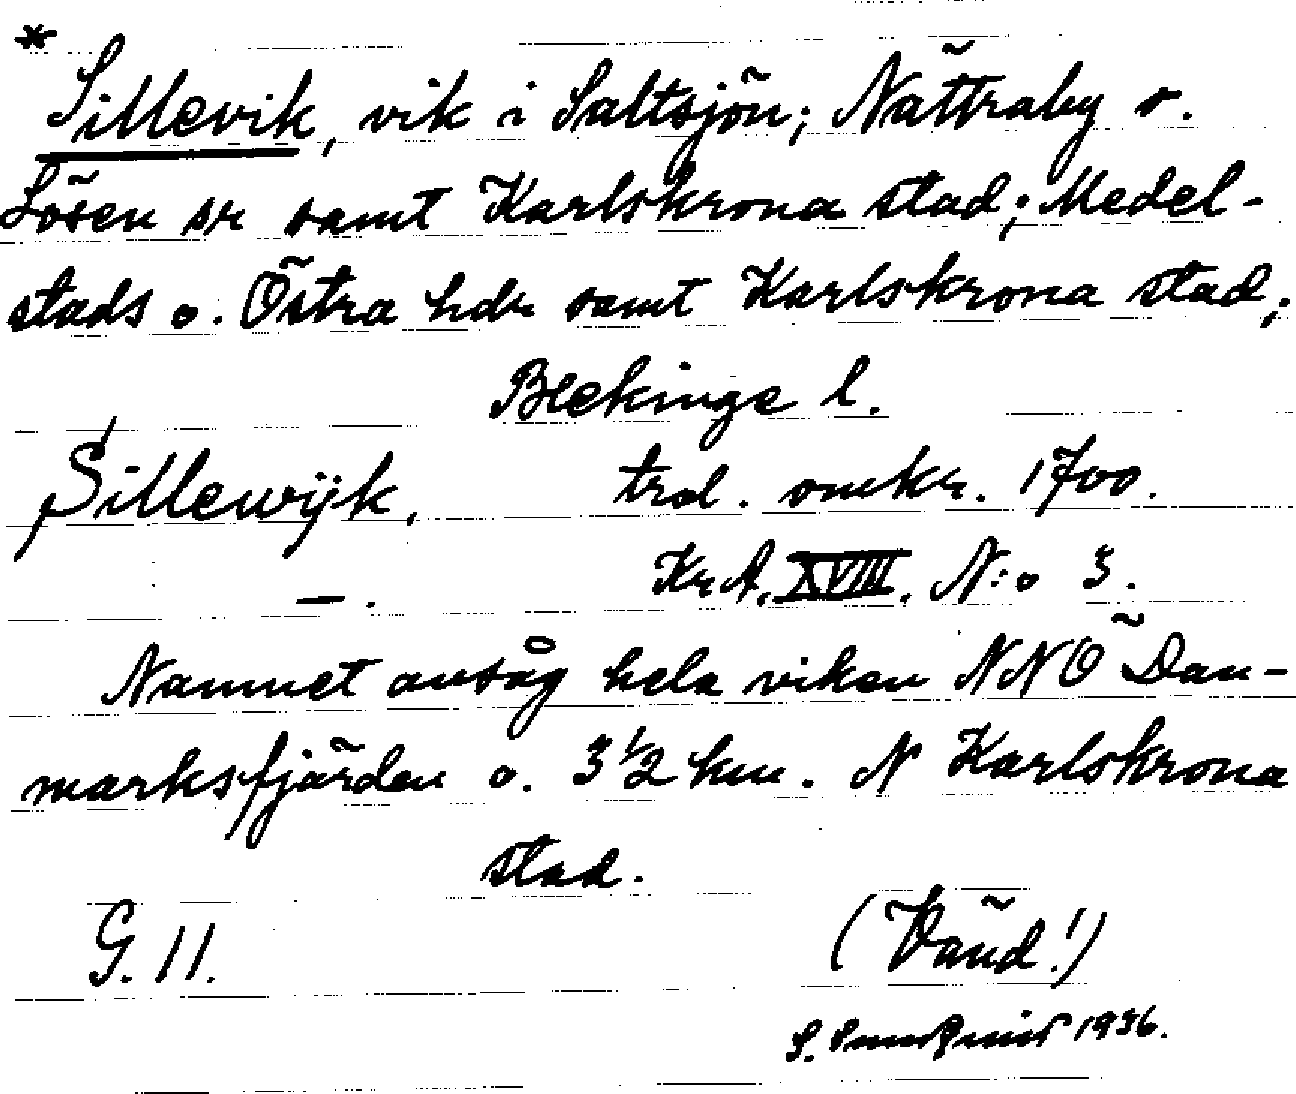 *
Sillevik, vik i Saltsjön; Nättraby o.
Lösen sr samt Karlskrona stad; Medel-
stads o. Östra hdr samt Karlskrona stad;
Blekinge l.
Sillewijk, trol. omkr. 1700.
Kr A. XVIII. N:o 3.
— .
Namnet ansåg hela viken NNÖ Dan-
marksfjärden o. 3 1/2 km. N Karlskrona
stad.
G. 11. (Vänd!)
S. 1936.